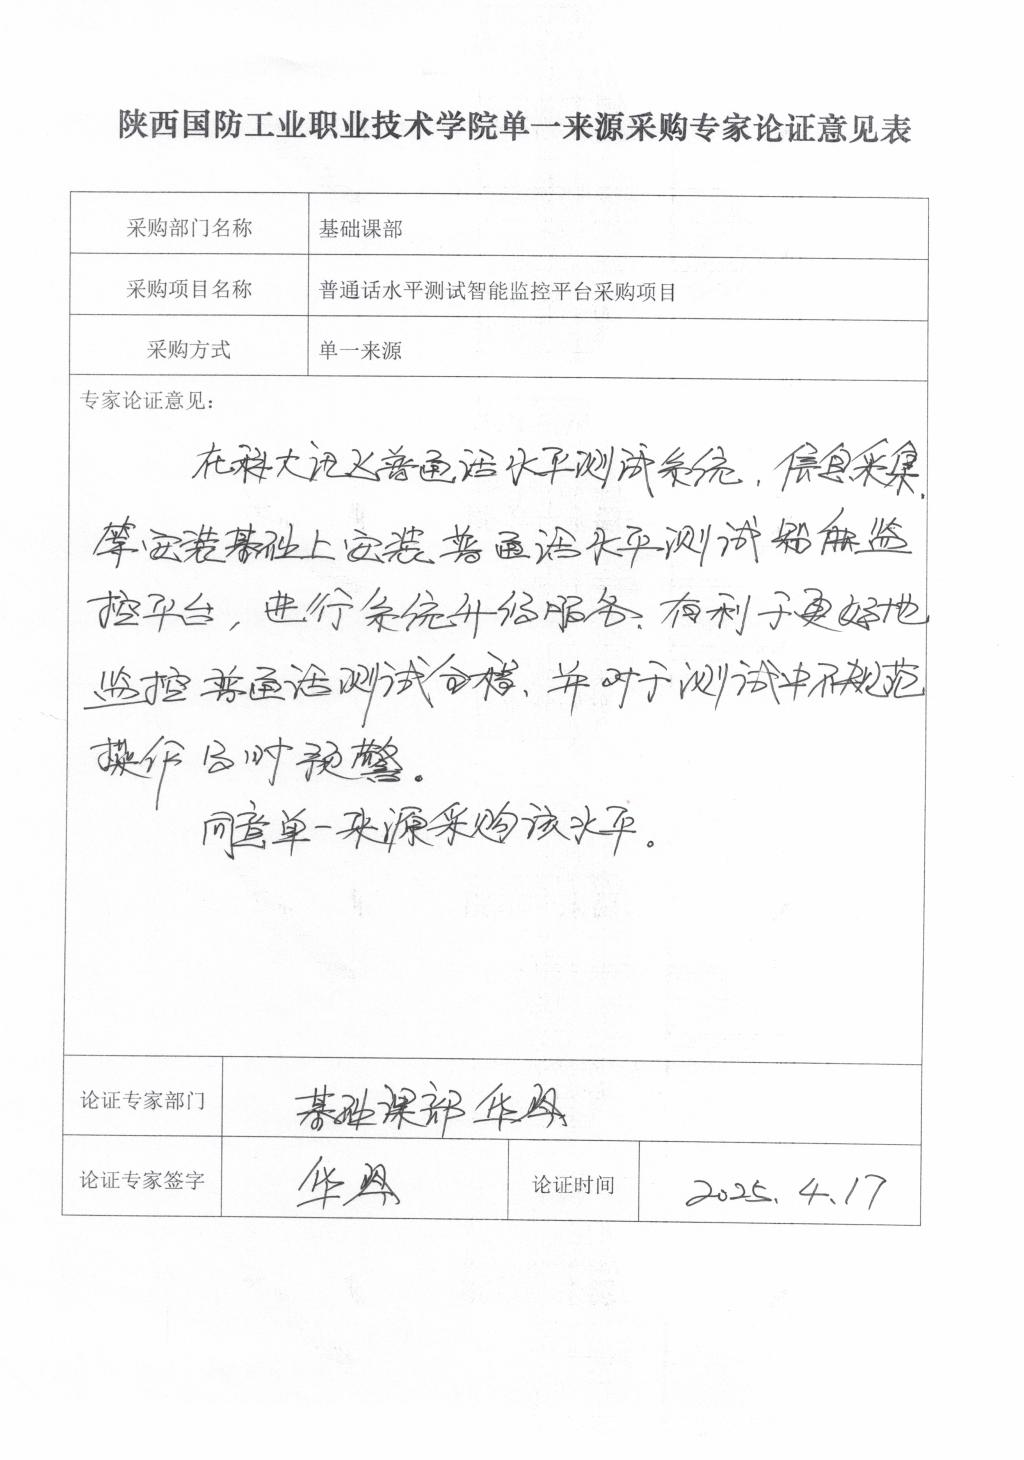 陕西国防工业职业技术学院单一来源采购专家论证意见表
采购部门名称 基础课部
采购项目名称 普通话水平测试智能监控平台采购项目
采购方式 单一来源
专家论证意见：
在科大讯飞普通话水平测试系统、信息采集
等安装基础上安装普通话水平测试智能监
控平台，进行系统升级服务，有利于更好地
监控普通话测试全程，并对于测试中不规范
操作及时预警。
同意单一来源采购该水平。
论证专家部门 基础课部 华
论证专家签字 华 论证时间 2025.4.17